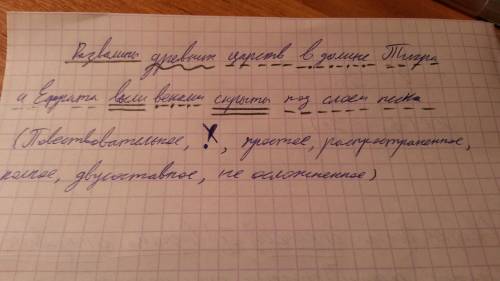 Развалины древних царств в долине Тигра
и Евфрата были веками скрыты под слоем песка
(Повествовательное, !, простое, распространенное,
полное, двусоставное, не осложненное)